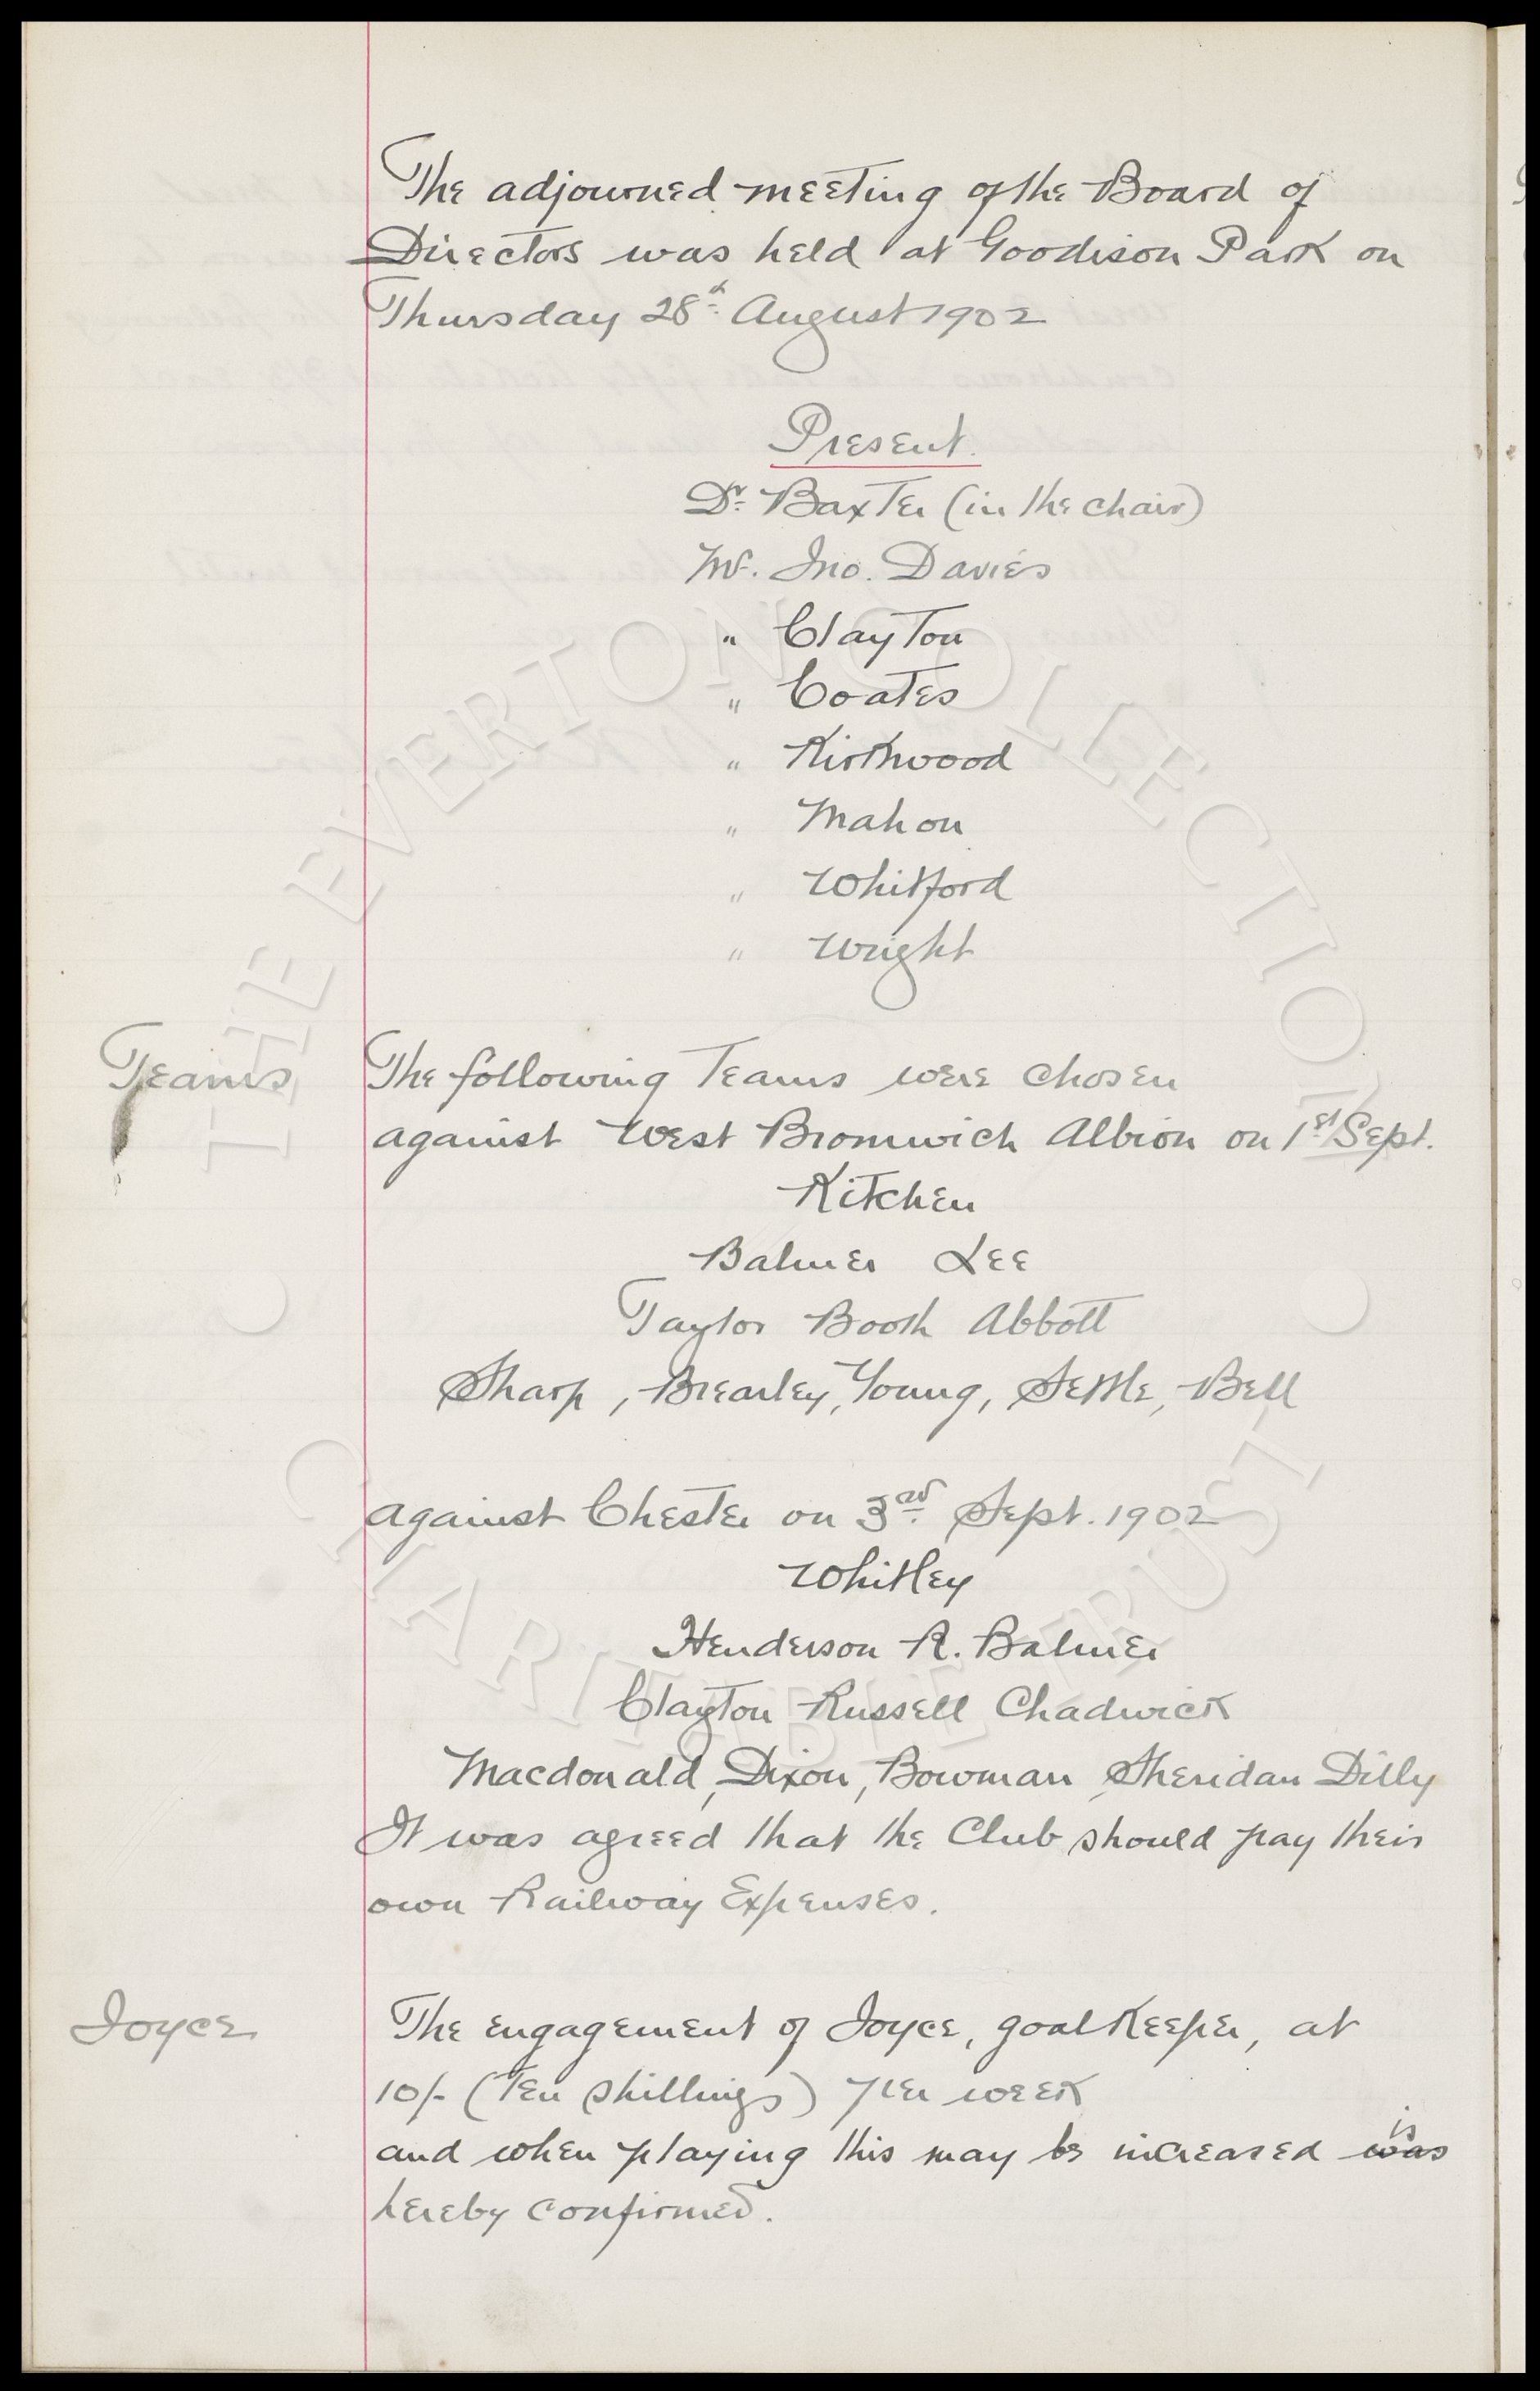 The adjourned meeting of the Board of
Directors was held at Goodison Park on
Thursday 28th August 1902
Present.
Dr. Baxter (in the chair)
Mr. Jno. Davies
" Clayton
" Coates
" Kirkwood
" Mahon
" Whitford
" Wright
Teams
The following Teams were chosen
against West Bromwich Albion on 1st Sept.
Kitchen
Balmer Lee
Taylor Booth Abbott
Sharp, Brearley, Young, Settle, Bell
against Chester on 3rd Sept. 1902
Whitley
Henderson R. Balmer
Clayton Russell Chadwick
Macdonald, Dixon, Bowman, Sheridan Dilly
It was agreed that the Club should pay their
own Railway Expenses.
Joyce
The engagement of Joyce, goalkeeper, at
10/- (Ten shillings) per week
is
and when playing this may be increased was
hereby confirmed.
THE EVERTON COLLECTION
CHARITABLE TRUST